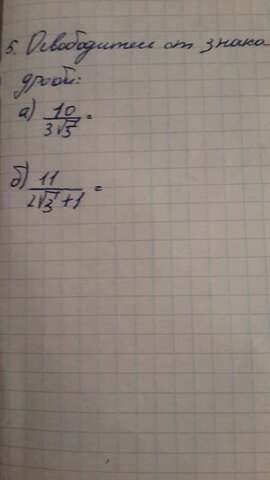 5. Освободитесь от знака
дроби:
а) 10/3√5 =
б) 11/2√3 +1 =